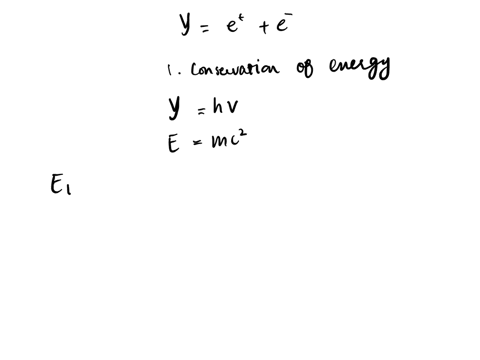 y = e⁺ + e⁻
1. Conservation of energy
y = hν
E = mc²
E₁